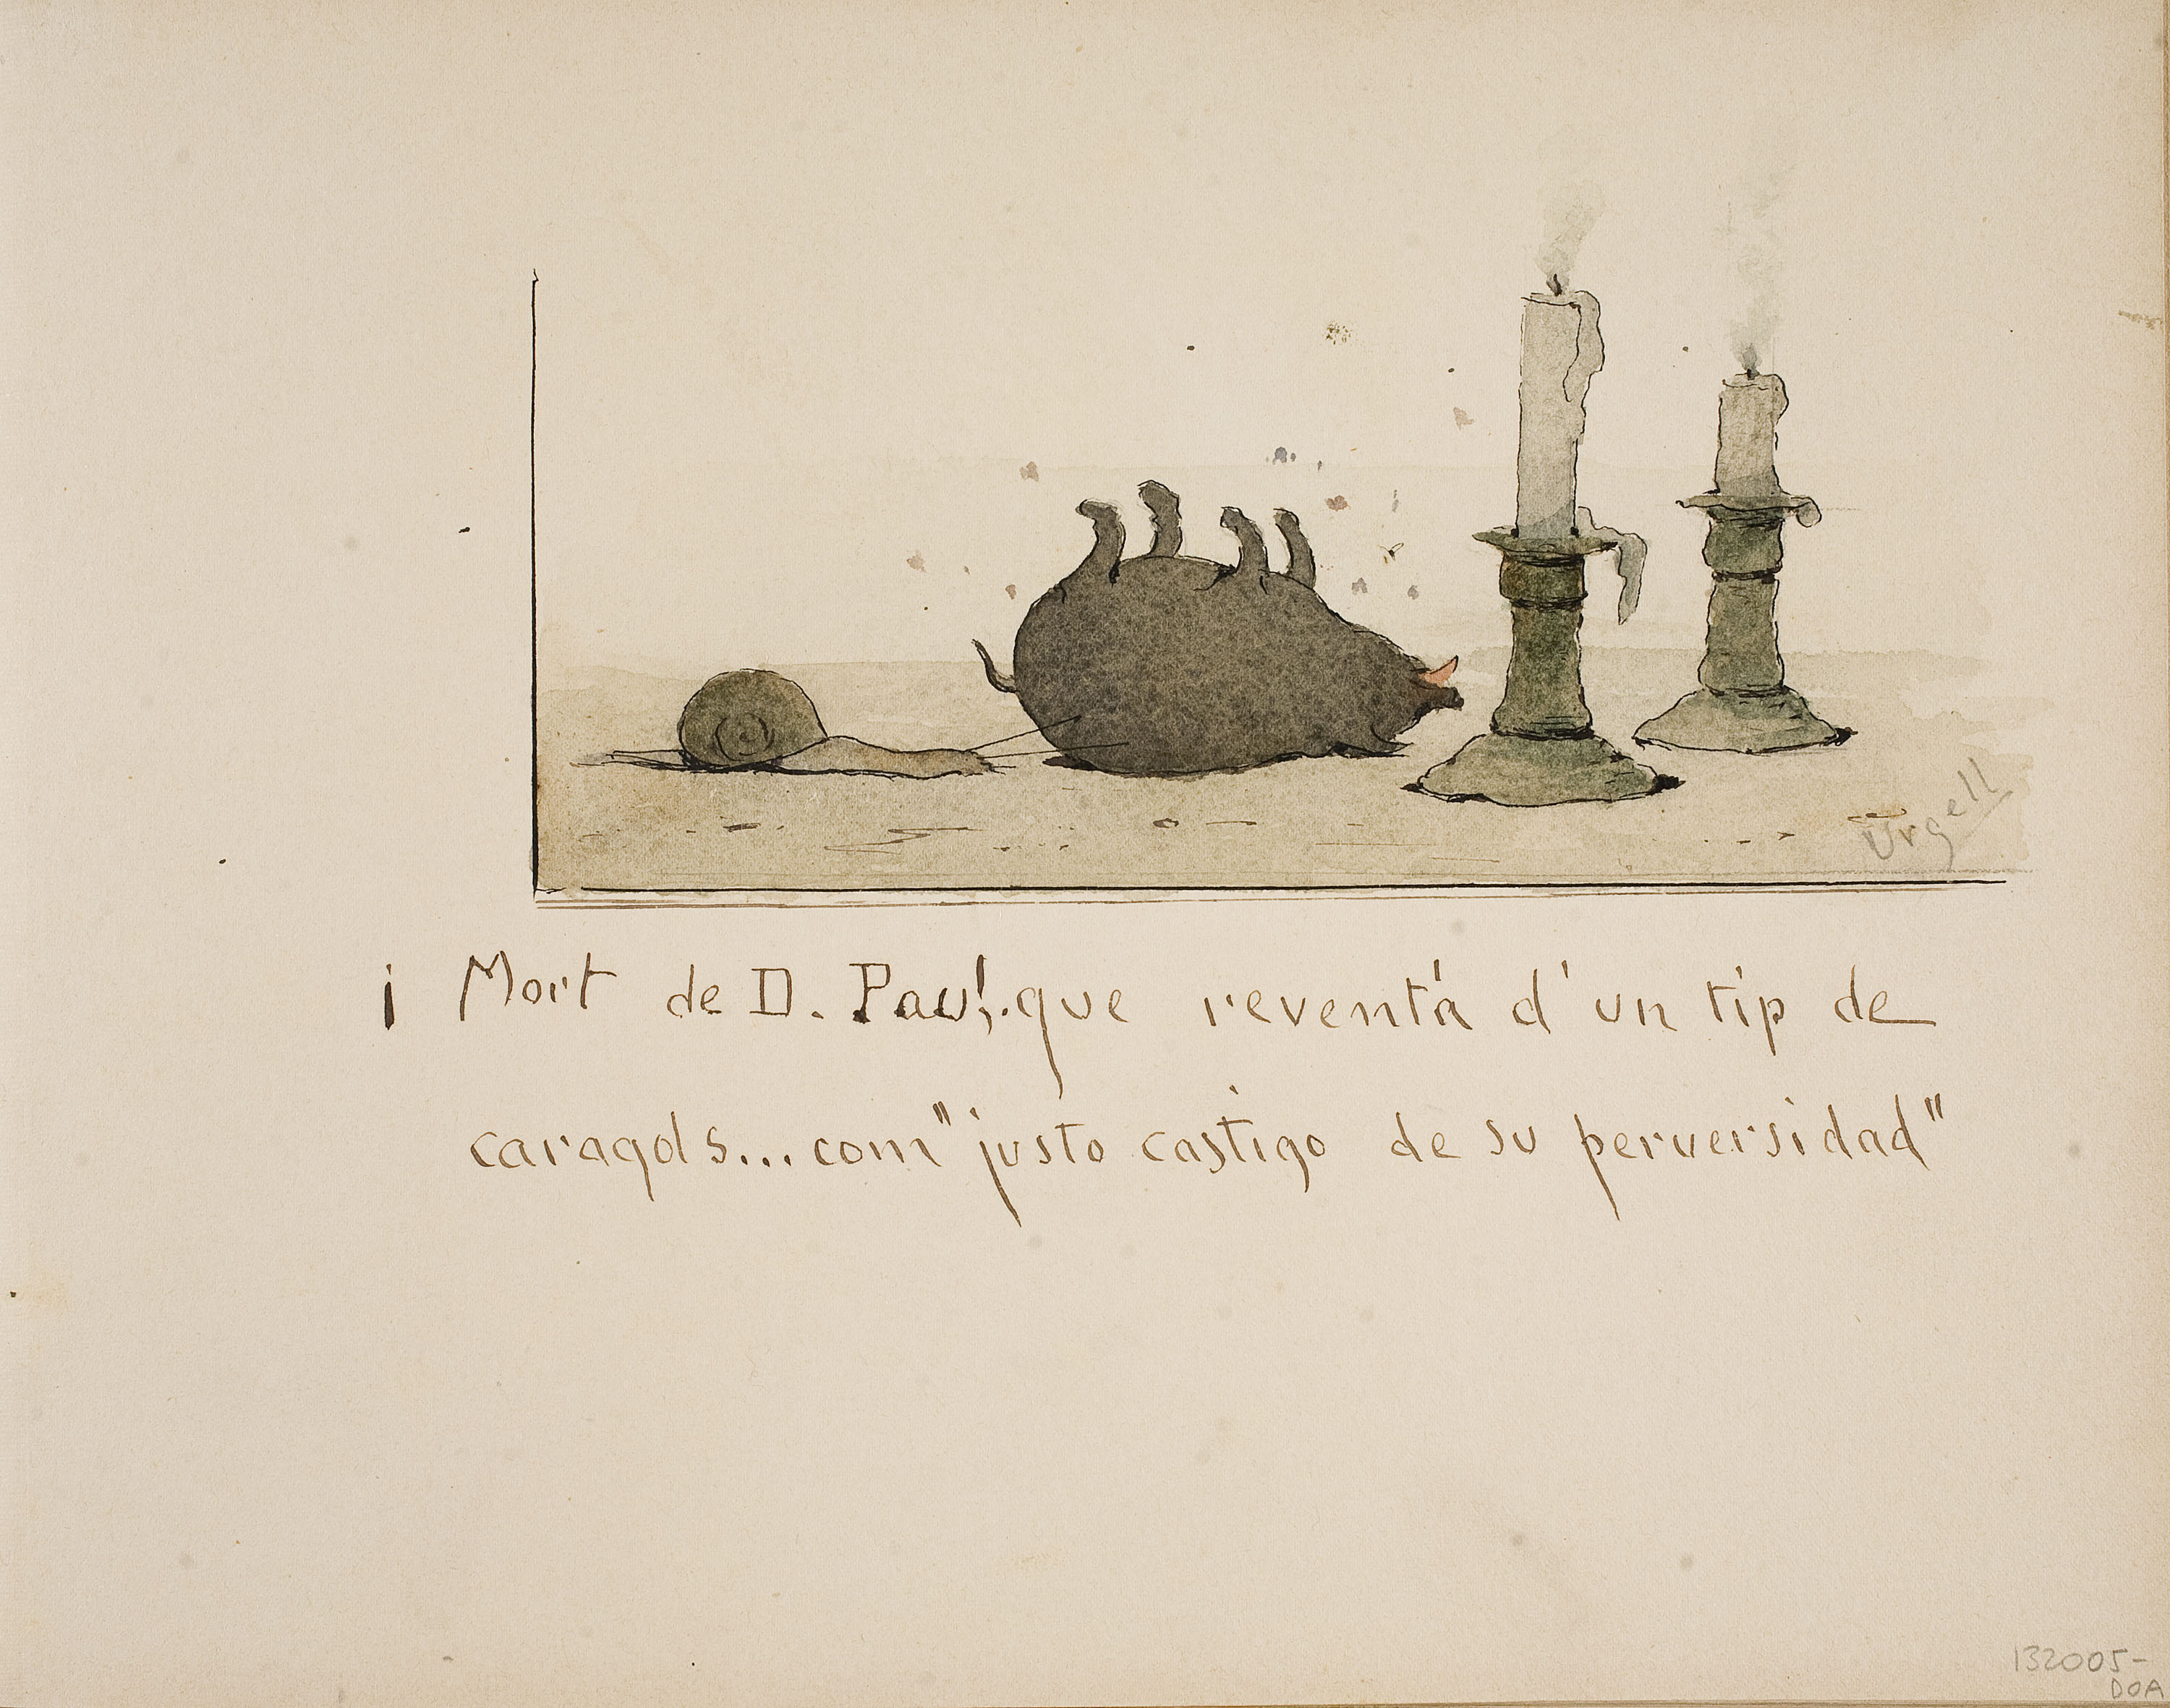 Urgell
¡ Mort de D. Pau!..que reventá d'un tip de
caragols...com "justo castigo de su perversidad"
132005-
DOA